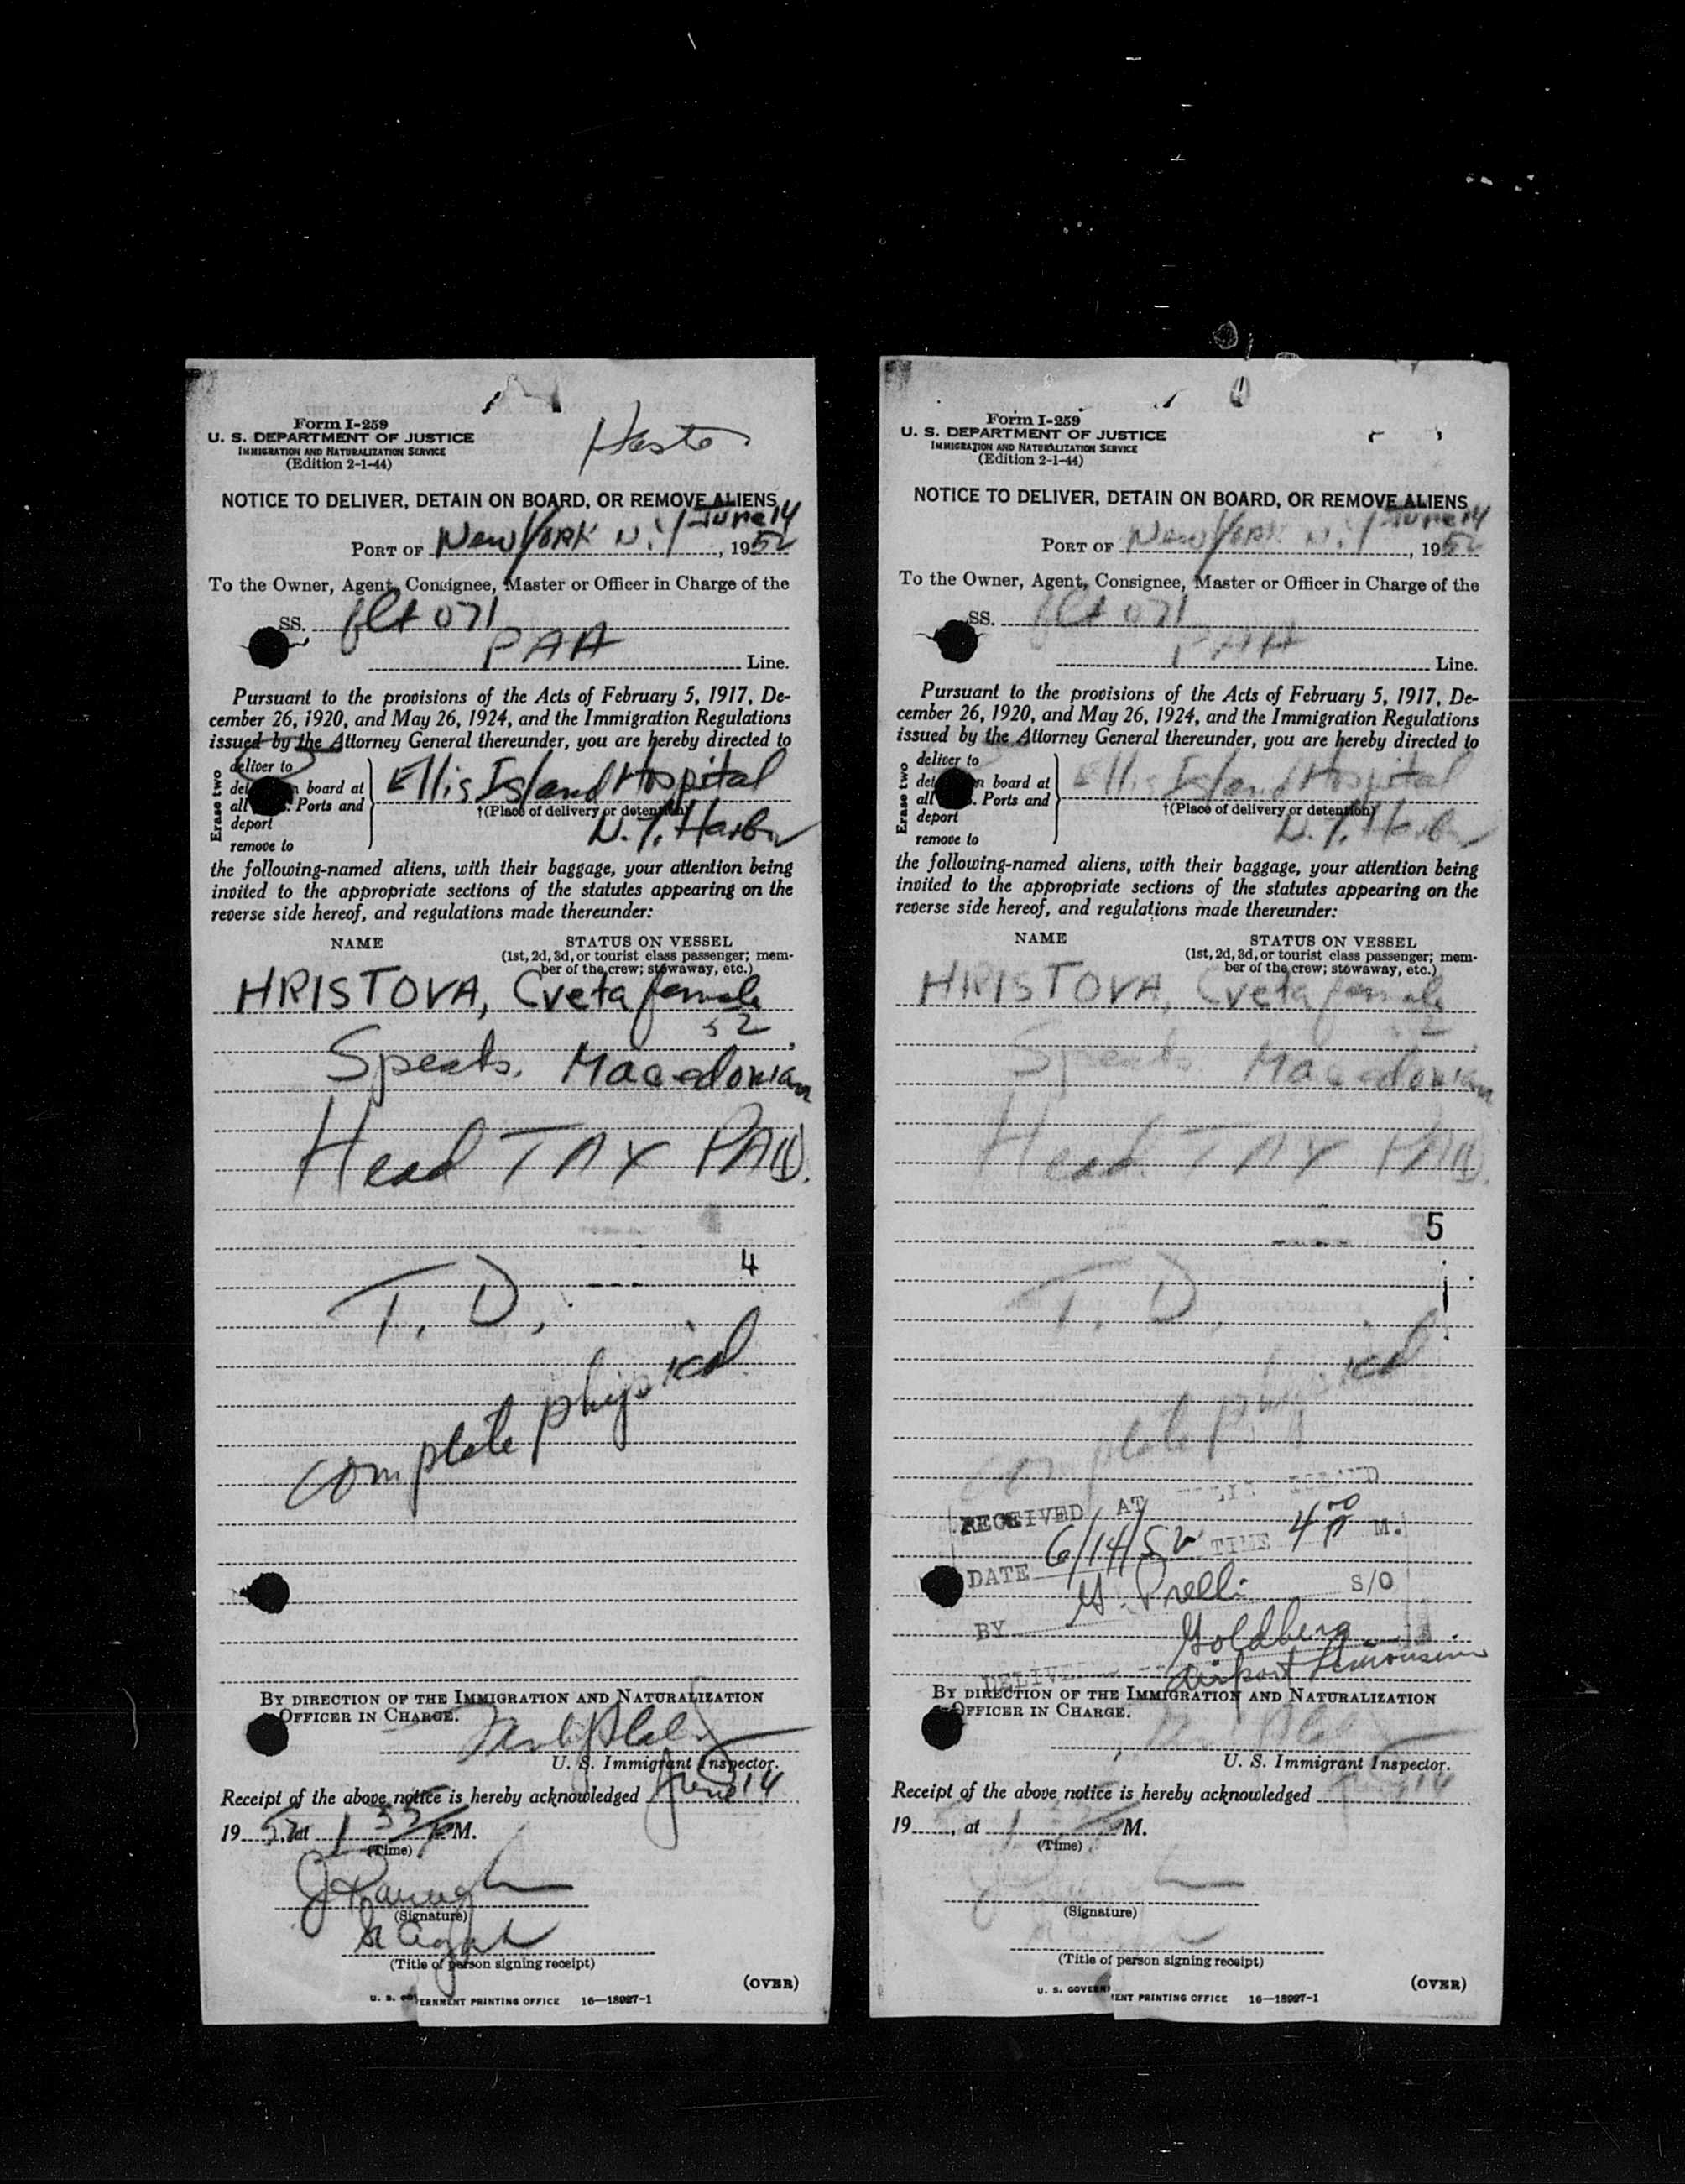 Form I-259
U. S. DEPARTMENT OF JUSTICE
IMMIGRATION AND NATURALIZATION SERVICE
(Edition 2-1-44)
NOTICE TO DELIVER, DETAIN ON BOARD, OR REMOVE ALIENS
June 14
PORT OF New York N.Y, 1952
To the Owner, Agent, Consignee, Master or Officer in Charge of the
SS. flt 071
PAA Line.
Pursuant to the provisions of the Acts of February 5, 1917, De-
cember 26, 1920, and May 26, 1924, and the Immigration Regulations
issued by the Attorney General thereunder, you are hereby directed to
Erase two
deliver to
board at
Ports and
deport
remove to
Ellis Island Hospital
†(Place of delivery or detention)
N.Y. Harbor
the following-named aliens, with their baggage, your attention being
invited to the appropriate sections of the statutes appearing on the
reverse side hereof, and regulations made thereunder:
NAME STATUS ON VESSEL
(1st, 2d, 3d, or tourist class passenger; mem-
ber of the crew; stowaway, etc.)
HRISTOVA, Cveta female
52
Speaks. Macedonian
Head TAX PAID.
4
T. D.
complete physical
BY DIRECTION OF THE IMMIGRATION AND NATURALIZATION
OFFICER IN CHARGE.
U. S. Immigrant Inspector.
Receipt of the above notice is hereby acknowledged June 14
1952, at 1 35 P M.
(Time)
(Signature)
(Title of person signing receipt)
(OVER)
U. S. GOVERNMENT PRINTING OFFICE 16—18987-1
Form I-259
U. S. DEPARTMENT OF JUSTICE
IMMIGRATION AND NATURALIZATION SERVICE
(Edition 2-1-44)
NOTICE TO DELIVER, DETAIN ON BOARD, OR REMOVE ALIENS
June 14
PORT OF New York N.Y, 1952
To the Owner, Agent, Consignee, Master or Officer in Charge of the
SS. flt 071
PAA Line.
Pursuant to the provisions of the Acts of February 5, 1917, De-
cember 26, 1920, and May 26, 1924, and the Immigration Regulations
issued by the Attorney General thereunder, you are hereby directed to
Erase two
deliver to
board at
Ports and
deport
remove to
Ellis Island Hospital
†(Place of delivery or detention)
N.Y. Harbor
the following-named aliens, with their baggage, your attention being
invited to the appropriate sections of the statutes appearing on the
reverse side hereof, and regulations made thereunder:
NAME STATUS ON VESSEL
(1st, 2d, 3d, or tourist class passenger; mem-
ber of the crew; stowaway, etc.)
HRISTOVA, Cveta female
52
Speaks. Macedonian
Head TAX PAID.
5
T. D.
complete physical
RECEIVED AT
DATE 6/14/52 TIME 4 00 P M.
S/O
BY
Goldberg
Airport Limousine
BY DIRECTION OF THE IMMIGRATION AND NATURALIZATION
OFFICER IN CHARGE.
U. S. Immigrant Inspector.
Receipt of the above notice is hereby acknowledged June 14
19, at 1 35 M.
(Time)
(Signature)
(Title of person signing receipt)
(OVER)
U. S. GOVERNMENT PRINTING OFFICE 16—18987-1